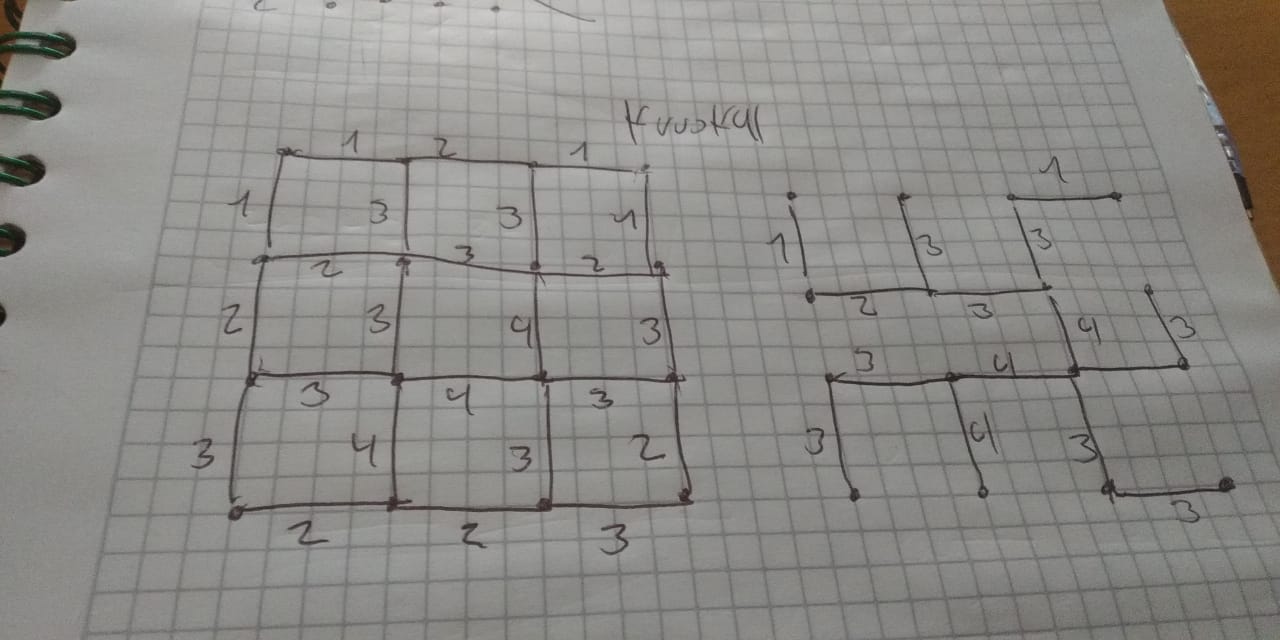 Kruskal
1 2 1
1 3 3 1
2 3 2
2 3 4 3
3 4 3
3 4 3 2
2 2 3
1
1 3 3
2 3
4 3
3 4
3 4 3
3